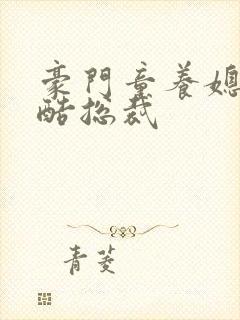 豪門童養媳
酷總裁
青菱